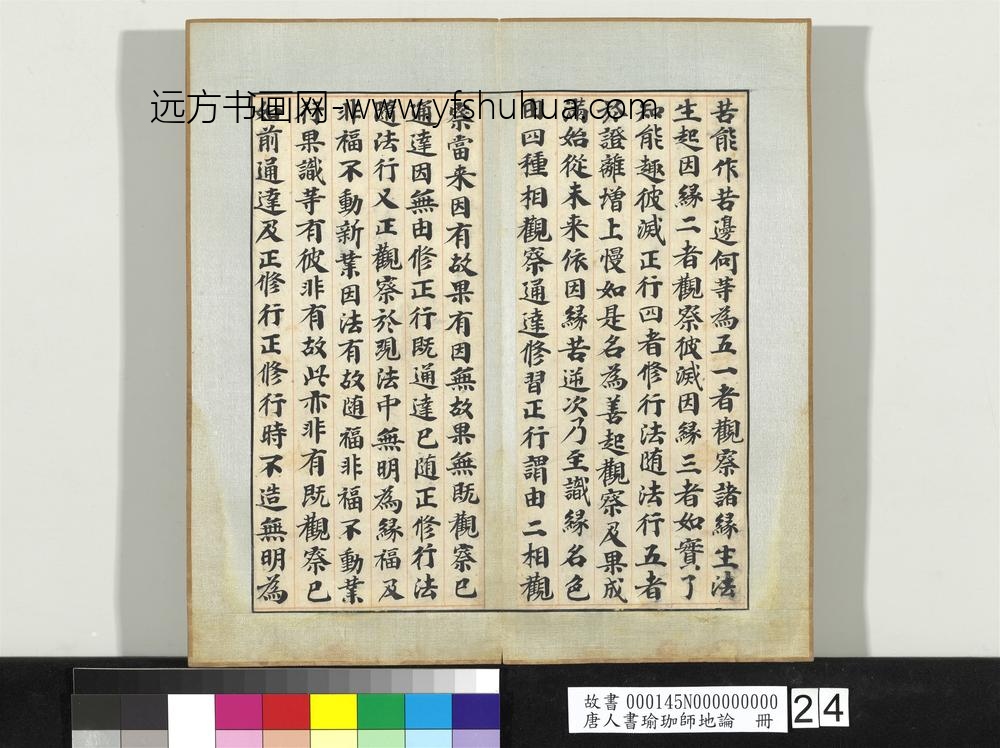 远方书画网-www.yfshuhua.com
苦能作苦邊何等為五一者觀察諸緣生法
生起因緣二者觀察彼滅因緣三者如實了
知能趣彼滅正行四者修行法随法行五者
證離增上慢如是名為善起觀察及果成
滿始從未来依因緣苦逆次乃至識緣名色
四種相觀察通達修習正行謂由二相觀
察當来因有故果有因無故果無既觀察已
通達因無由修正行既通達已随正修行法
随法行又正觀察於現法中無明為緣福及
非福不動新業因法有故随福非福不動業
行果識等有彼非有故此亦非有既觀察已
如前通達及正修行正修行時不造無明為
故書 000145N000000000
唐人書瑜珈師地論 冊
24